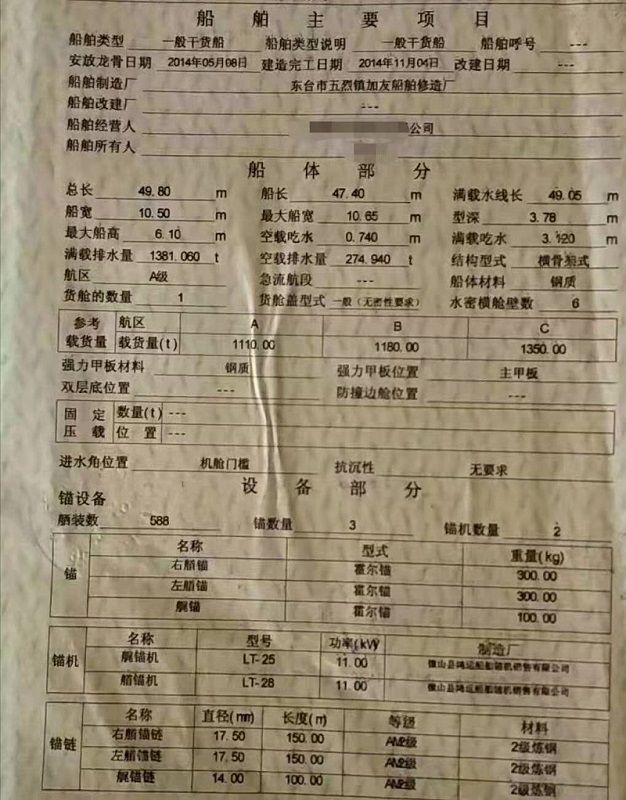 船舶主要项目
船舶类型 一般干货船 船舶类型说明 一般干货船 船舶呼号 ---
安放龙骨日期 2014年05月08日 建造完工日期 2014年11月04日 改建日期 ---
船舶制造厂 东台市五烈镇加友船舶修造厂
船舶改建厂 ---
船舶经营人 公司
船舶所有人
船体部分
总长 49.80 m 船长 47.40 m 满载水线长 49.05 m
船宽 10.50 m 最大船宽 10.65 m 型深 3.78 m
最大船高 6.10 m 空载吃水 0.740 m 满载吃水 3.120 m
满载排水量 1381.060 t 空载排水量 274.940 t 结构型式 横骨架式
航区 A级 急流航段 --- 船体材料 钢质
货舱的数量 1 货舱盖型式 一般（无密性要求） 水密横舱壁数 6
参考 航区 A B C
载货量 载货量(t) 1110.00 1180.00 1350.00
强力甲板材料 钢质 强力甲板位置 主甲板
双层底位置 --- 防撞边舱位置 ---
固定 数量(t) ---
压载 位置 ---
进水角位置 机舱门槛 抗沉性 无要求
设备部分
锚设备
舾装数 588 锚数量 3 锚机数量 2
锚 名称 型式 重量(kg)
右艏锚 霍尔锚 300.00
左艏锚 霍尔锚 300.00
艉锚 霍尔锚 100.00
锚机 名称 型号 功率(kW) 制造厂
艉锚机 LT-25 11.00 微山县鸿运船舶锚机销售有限公司
艏锚机 LT-28 11.00 微山县鸿运船舶锚机销售有限公司
锚链 名称 直径(mm) 长度(m) 等级 材料
右艏锚链 17.50 150.00 AM2级 2级炼钢
左艏锚链 17.50 150.00 AM2级 2级炼钢
艉锚链 14.00 100.00 AM2级 2级炼钢